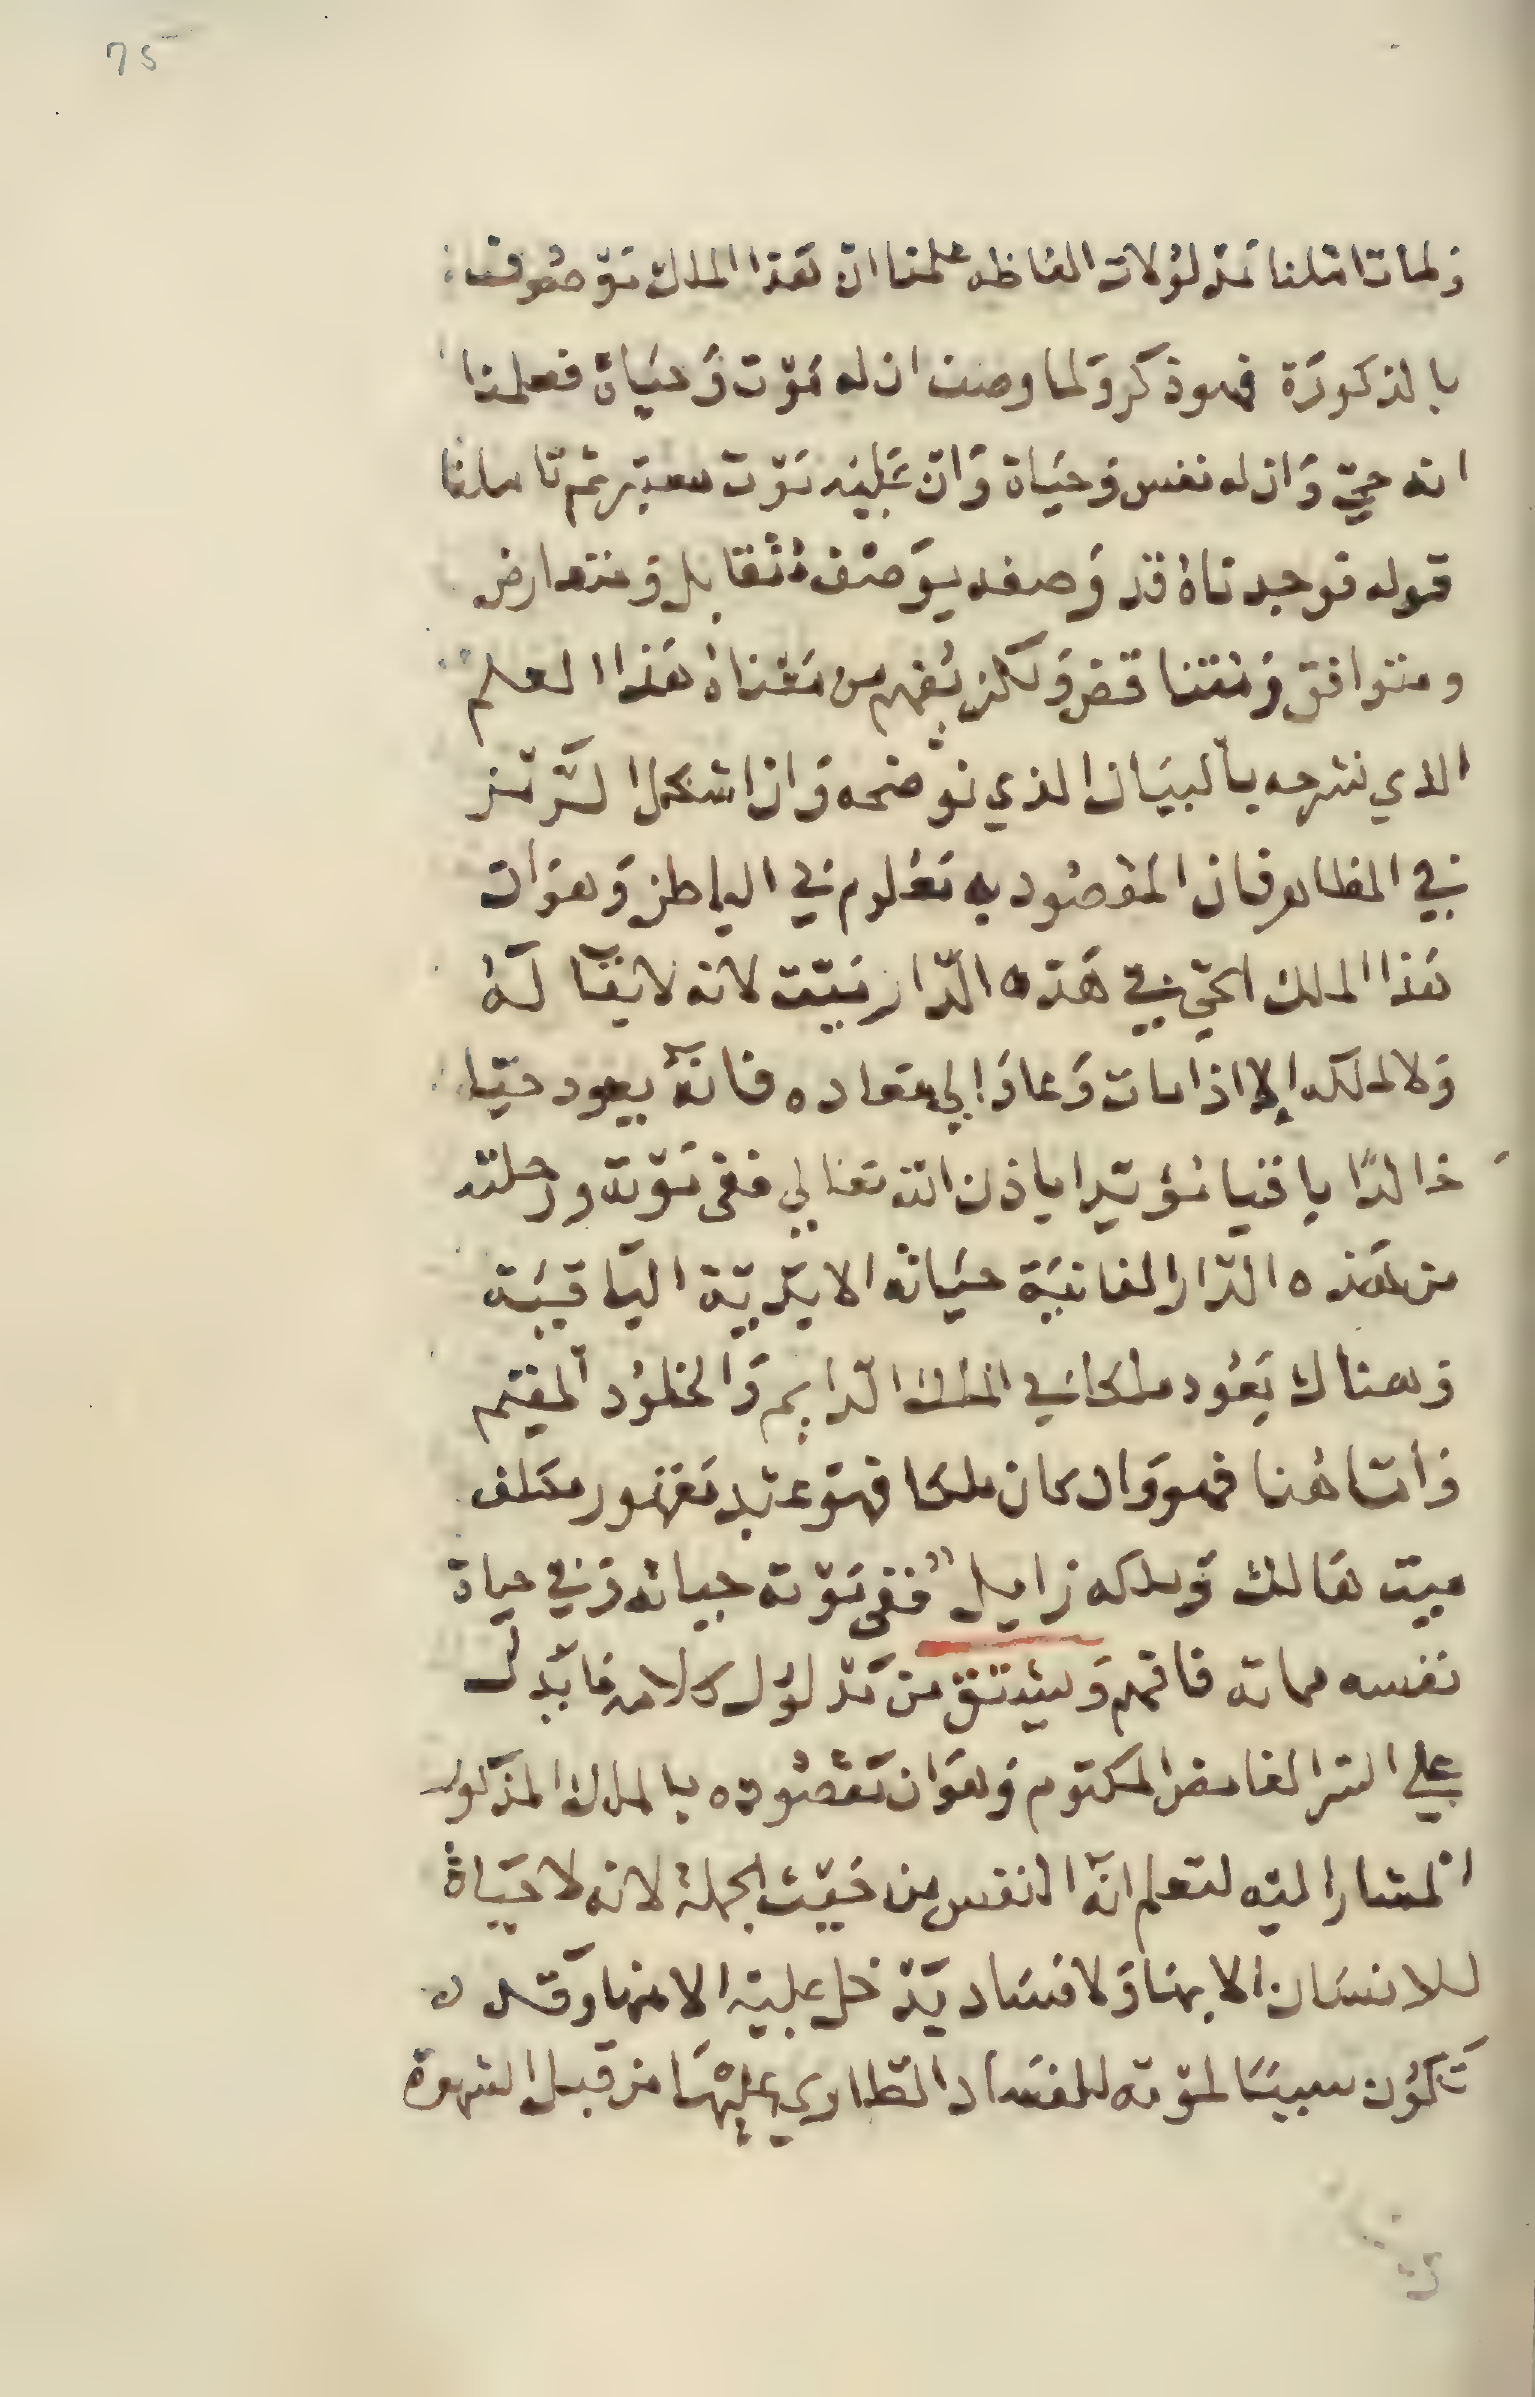 75
ولما تاملنا مدلولات الفاظه علمنا ان هذا الملك موصوف
بالذكورة فهو ذكر ولما وصف ان له موت وحياة فعلمنا
انه حي وان له نفس وحياة وان عليه موت ثم تاملنا
قوله فوجدناه قد وصفه بوصف متقابل ومتعارض
ومتوافق ومتناقض ولكن يفهم من معناه هذا العلم
الذي نشرحه بالبيان الذي نوضحه وان اشكل الرمز
في الظاهر فان المقصود به معلوم في الباطن وهو ان
هذا الملك الحي في هذه الدار ميت لانه لا بقا له
ولا لملكه إلا اذا مات وعاد الي معاده فانه يعود حيا
خالدًا باقيا مؤبدا باذن الله تعالي ففى موته ورحلته
من هذه الدار الفانية حياته الابدية الباقية
وهناك يعود ملكا في الملك الدايم والخلود المقيم
وأما هنا فهو وان كان ملكا فهو عبد مقهور مكلف
ميت هالك وملكه زايل ففى موته حياته وفي حياة
نفسه مماته فافهم من مدلول كلامه ما يدل
علي السر الغامض المكتوم وهو ان مقصوده بالملك المذكور
المشار اليه لتعلم انه النفس من حيث الجملة لانه لا حياة
للانسان الا بها ولا فساد يدخل عليه الا منها وقد
تكون سببا لموته للفساد الطاري عليها من قبل الشهوة